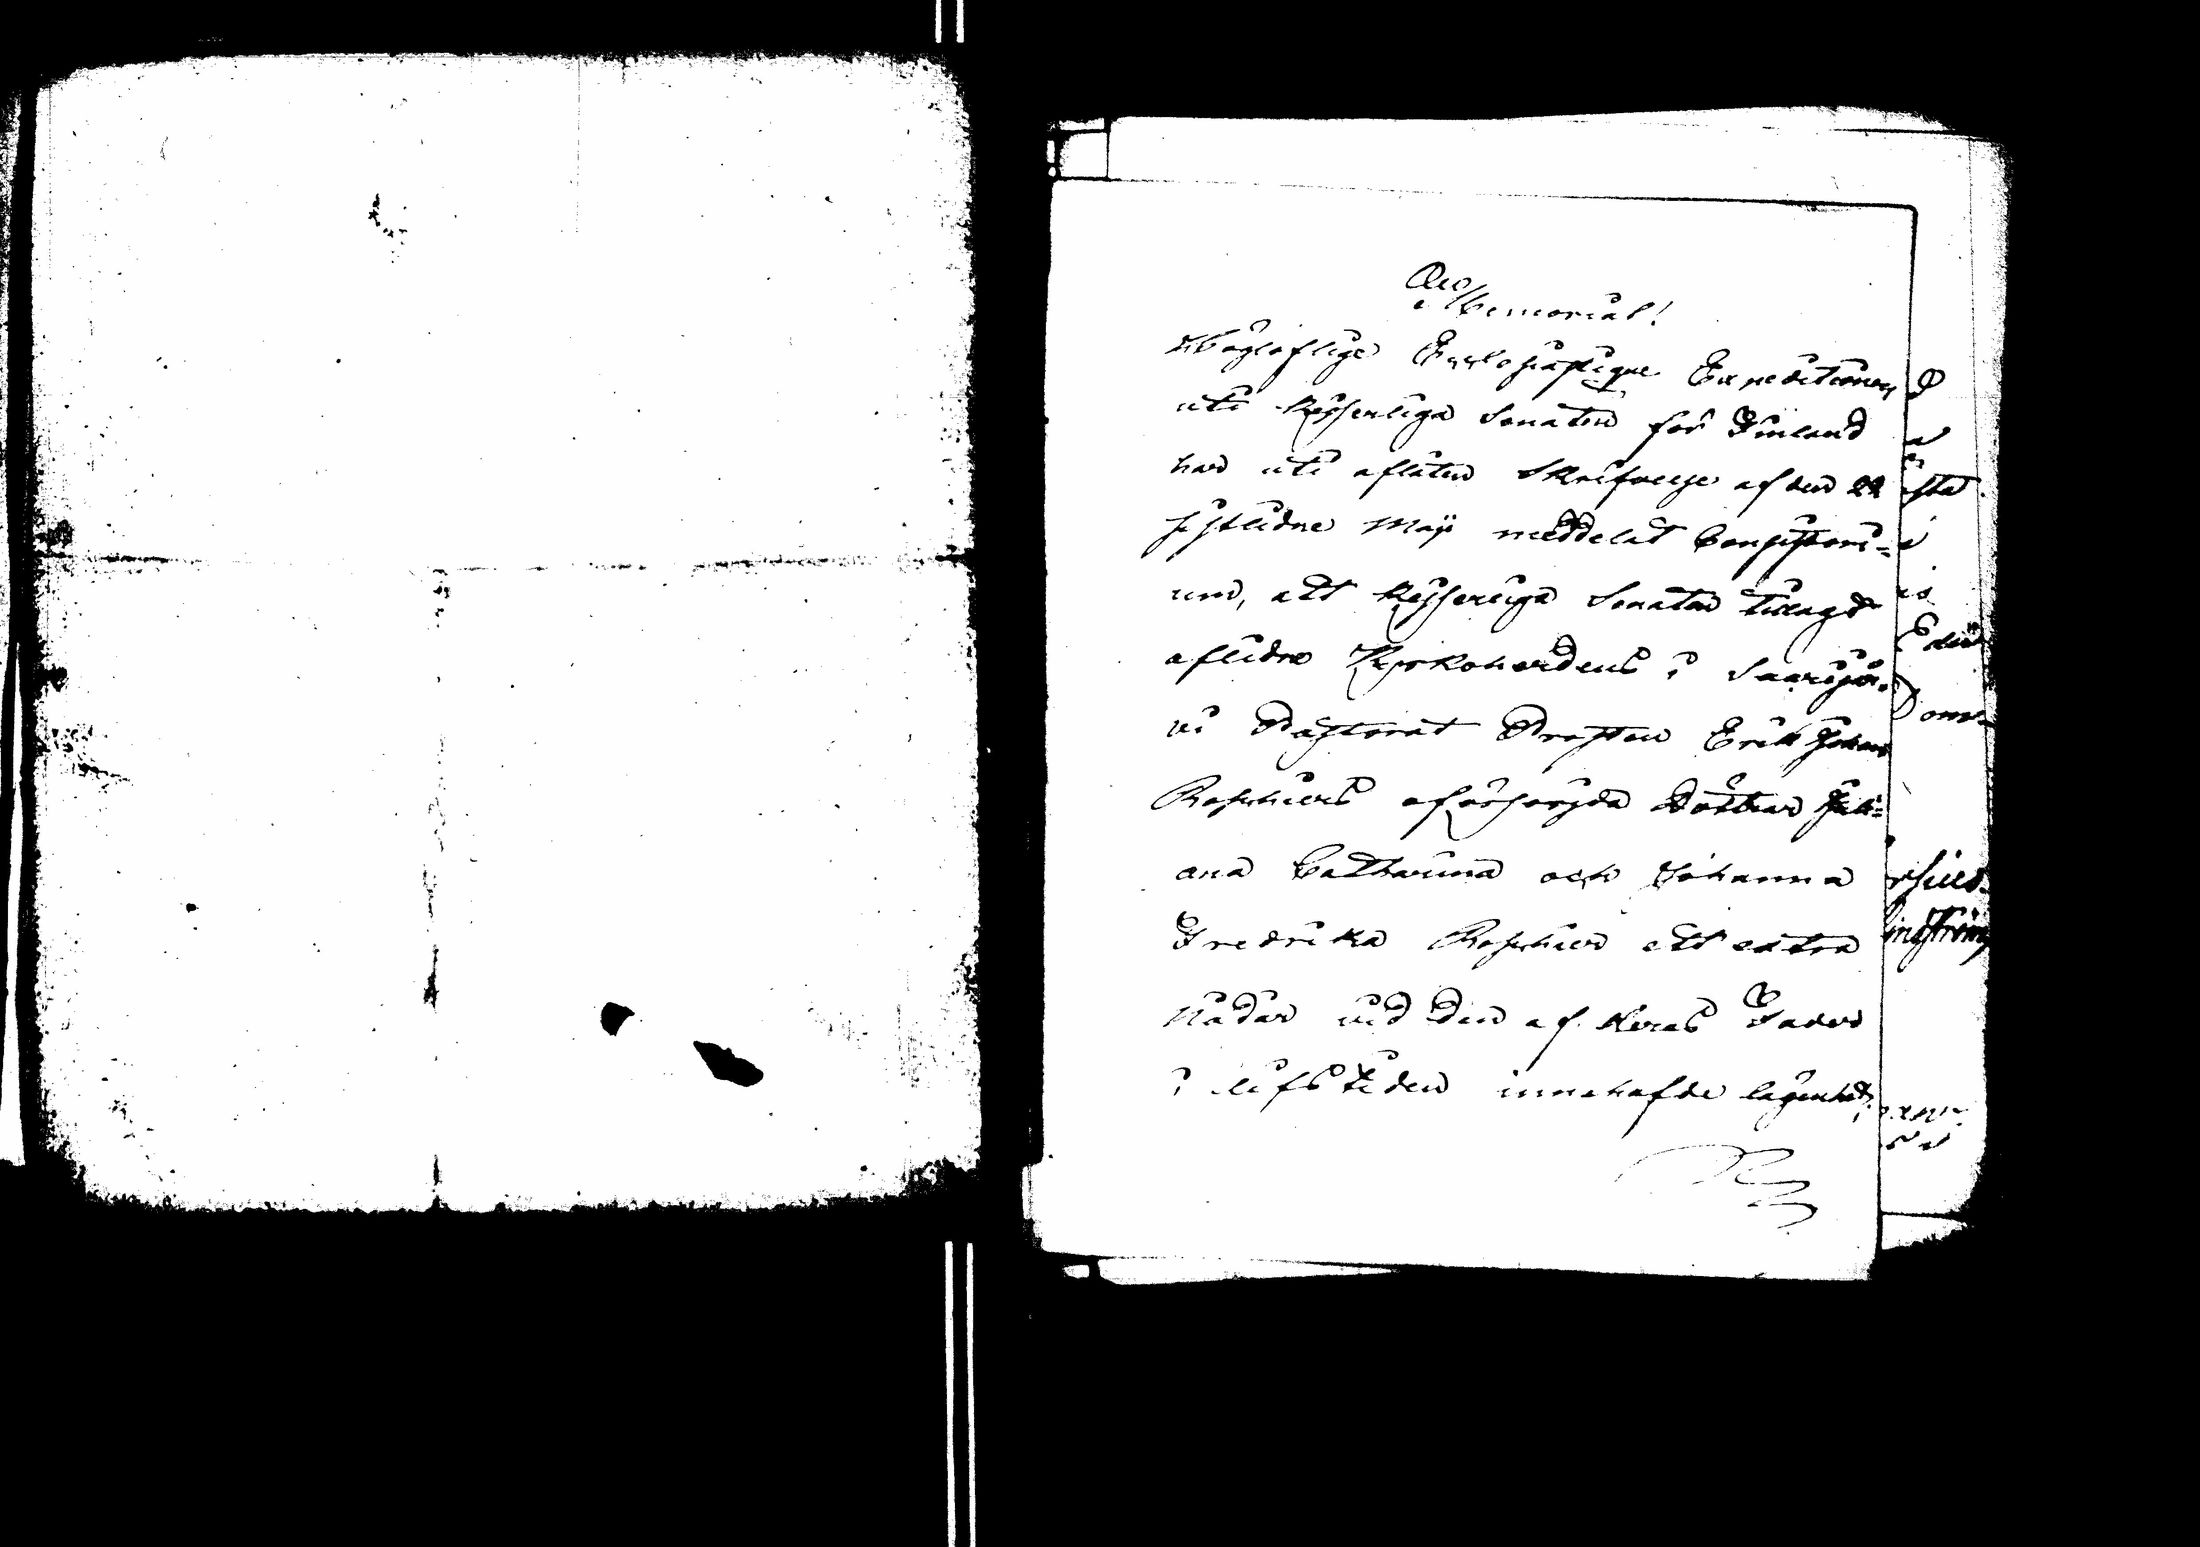 Memorial!
Högloflige Ecclesiastique Expeditionen
uti Kejserliga Senaten för Finland
har uti aflåten Skrifvelse af den 22
sistledne Maji meddelat Consistori=
um, att Kejserliga Senaten tillagdt
aflidne Kyrkoherdens i Saarijär=
vi Pastorat Prosten Erik Johan
Roschiers oförsörgda Döttrar Juli=
ana Catharina och Johanna
Fredrika Roschier ett extra
Nådår vid den af deras Fader
i lifstiden innehafde lägenhet,